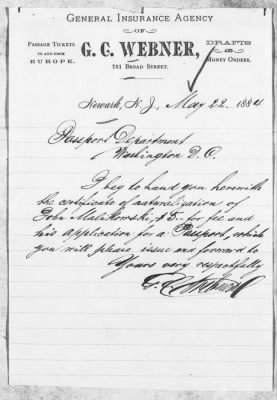 GENERAL INSURANCE AGENCY
OF
G. C. WEBNER,
781 BROAD STREET.
PASSAGE TICKETS
TO AND FROM
EUROPE.
DRAFTS
AND
MONEY ORDERS.
Newark, N. J., May 22. 1884
Passport Department
Washington D. C.
I beg to hand you herewith
the certificate of naturalization of
John Malikowski, $5. for fee and
his application for a Passport, which
you will please issue and forward to
Yours very respectfully
G. C. Webner